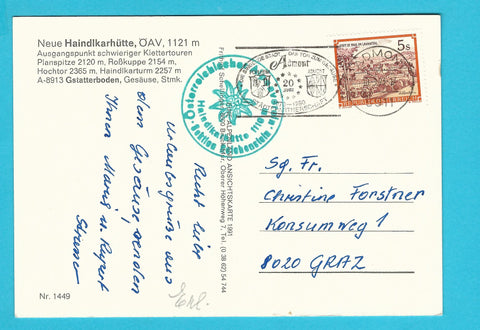 Neue Haindlkarhütte, ÖAV, 1121 m
Ausgangspunkt schwieriger Klettertouren
Planspitze 2120 m, Roßkuppe 2154 m,
Hochtor 2365 m, Haindlkarturm 2257 m
A-8913 Gstatterboden, Gesäuse, Stmk.
Recht liebe
Urlaubsgrüße aus
dem Gesäuse senden
Ihnen Maria u. Rupert
Nr. 1449
Österreichischer Alpenverein
Haindlkarhütte 1121 m
Sektion Reichenstein
Admont
20
5s
Sg. Fr.
Christine Forstner
Konsumweg 1
8020 GRAZ